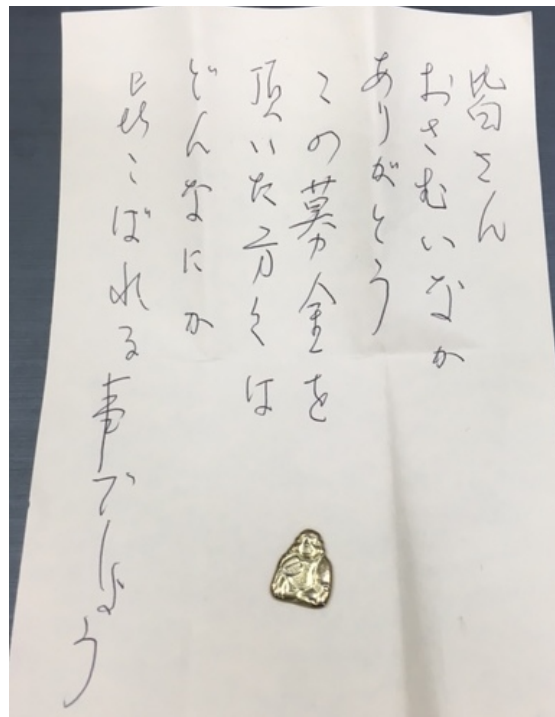 皆さん
おさむいなか
ありがとう
この募金を
頂いた方々は
どんなにか
喜こばれる事でしょう